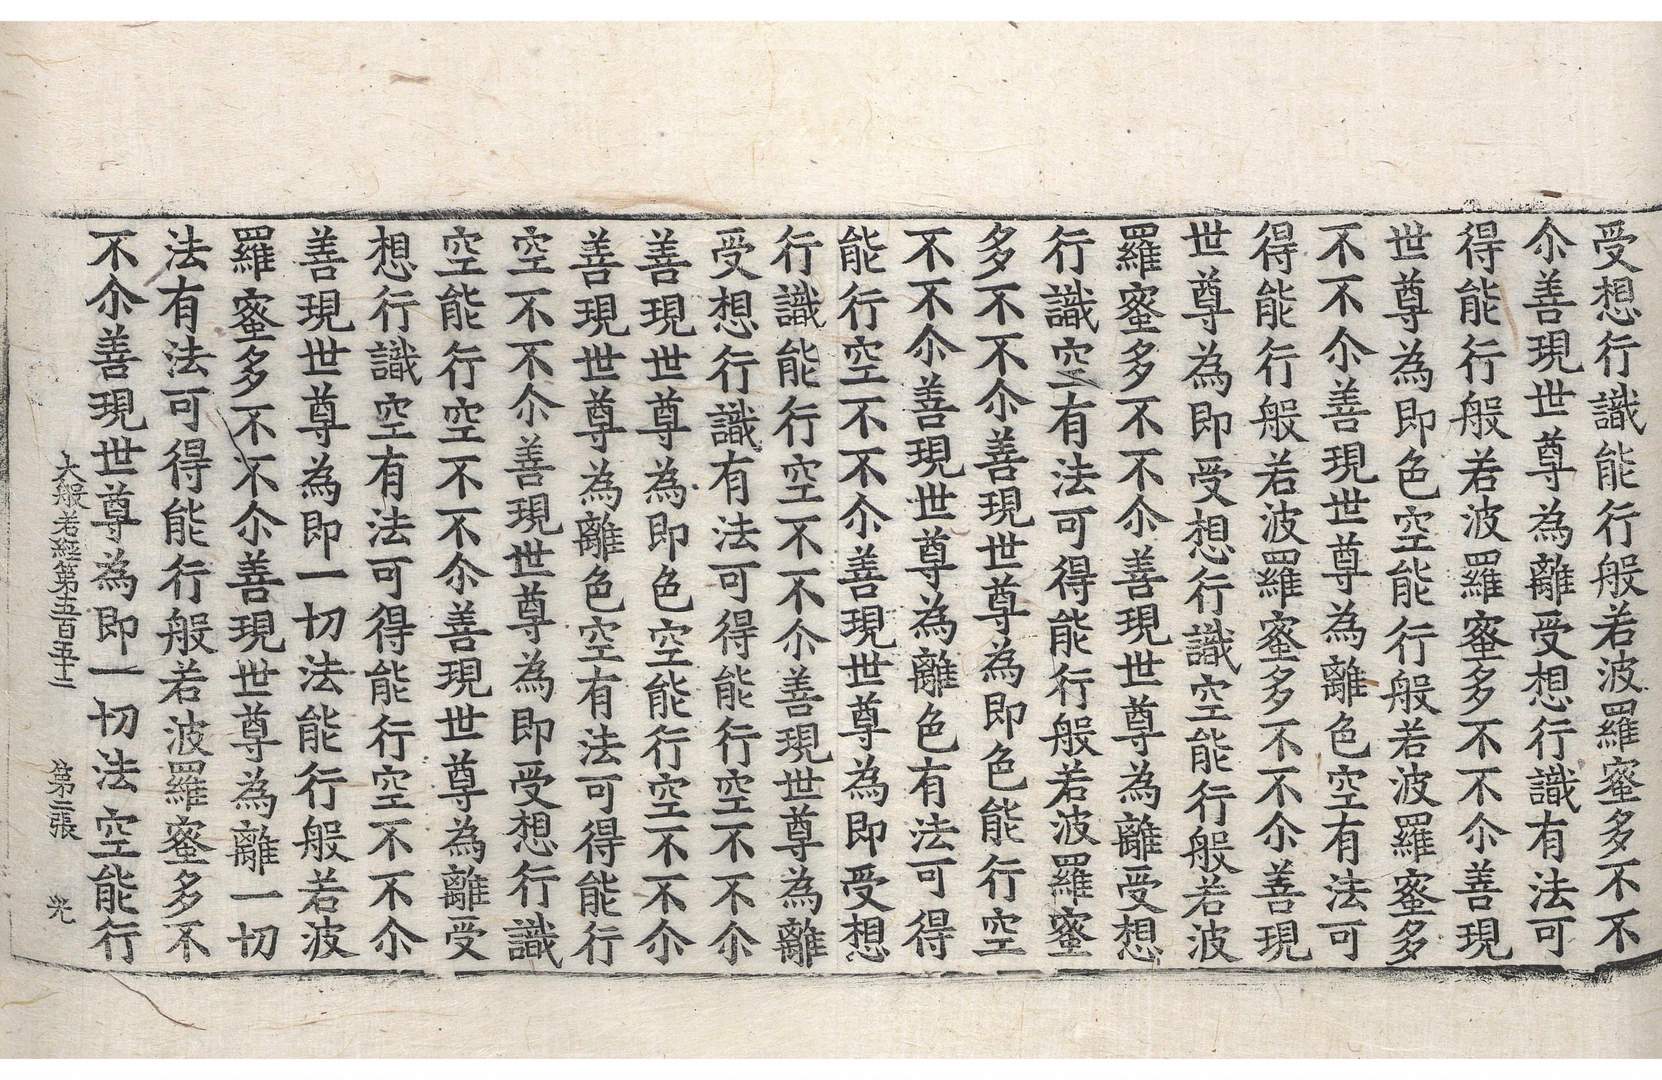 受想行識能行般若波羅蜜多不不
尒善現世尊為離受想行識有法可
得能行般若波羅蜜多不不尒善現
世尊為即色空能行般若波羅蜜多
不不尒善現世尊為離色空有法可
得能行般若波羅蜜多不不尒善現
世尊為即受想行識空能行般若波
羅蜜多不不尒善現世尊為離受想
行識空有法可得能行般若波羅蜜
多不不尒善現世尊為即色能行空
不不尒善現世尊為離色有法可得
能行空不不尒善現世尊為即受想
行識能行空不不尒善現世尊為離
受想行識有法可得能行空不不尒
善現世尊為即色空能行空不不尒
善現世尊為離色空有法可得能行
空不不尒善現世尊為即受想行識
空能行空不不尒善現世尊為離受
想行識空有法可得能行空不不尒
善現世尊為即一切法能行般若波
羅蜜多不不尒善現世尊為離一切
法有法可得能行般若波羅蜜多不
不尒善現世尊為即一切法空能行
大般若經第五百五十二 第二張 光